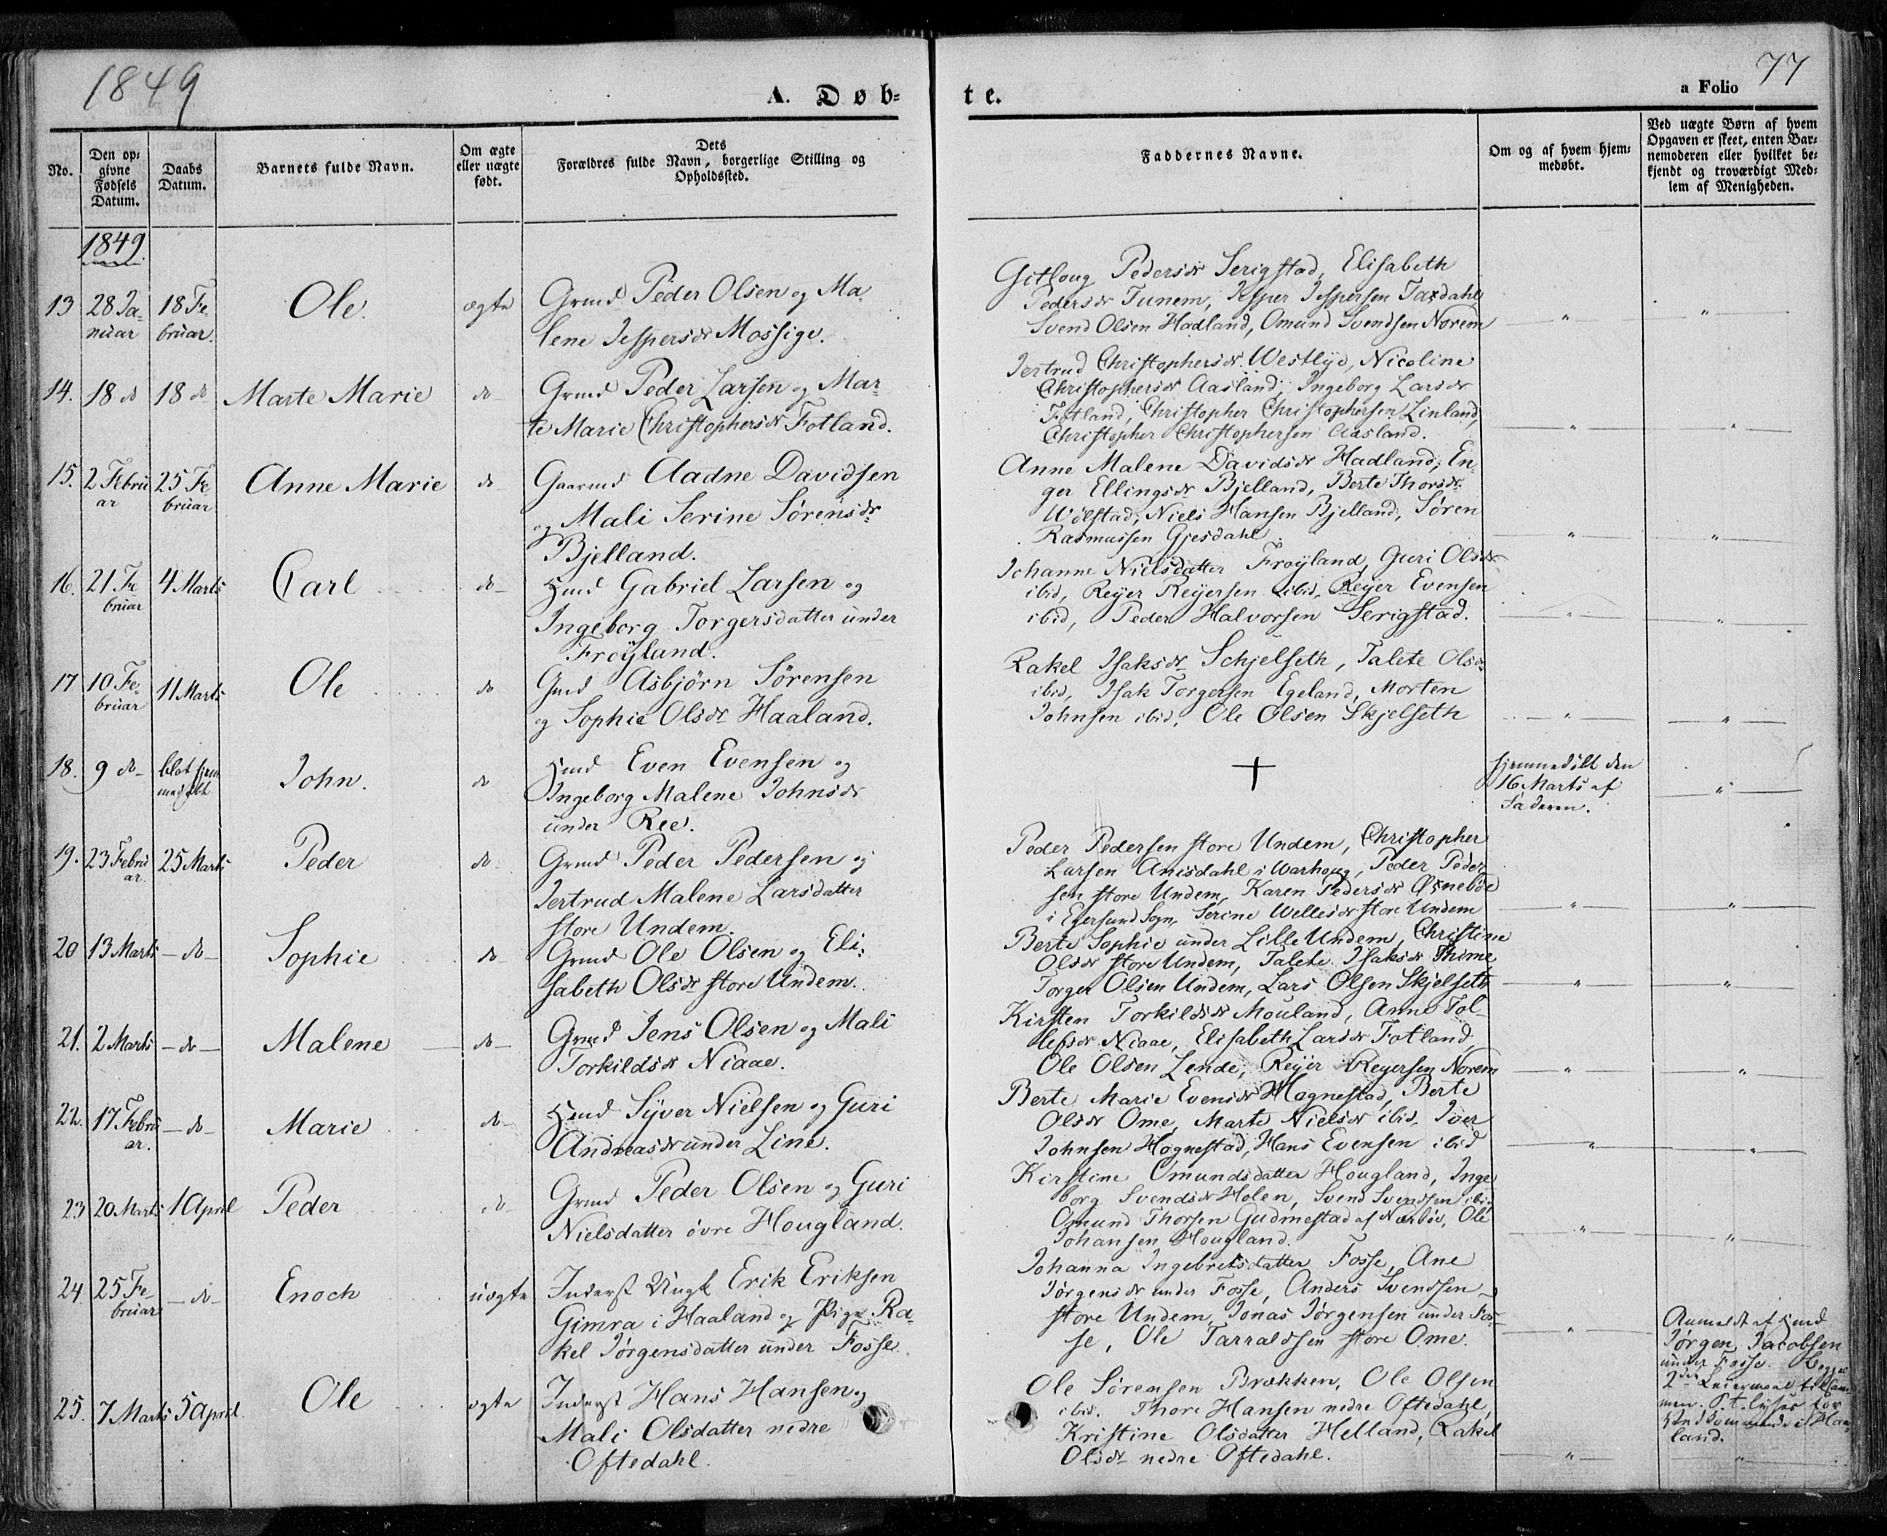 1849
A. Døb-
te.
a Folio 77
No.
Den op-
givne
Fødsels
Datum.
Daabs
Datum.
Barnets fulde Navn.
Om ægte
eller uægte
født.
Dets
Forældres fulde Navn, borgerlige Stilling og
Opholdssted.
Faddernes Navne.
Om og af hvem hjem-
medøbt.
Ved uægte Børn af hvem
Opgaven er skeet, enten Bar-
nemoderen eller hvilket be-
kjendt og troværdigt Med-
lem af Menigheden.
1849.
13 28 Ja-
nuar
18 Fe
bruar.
Ole.
ægte
Grmd Peder Olsen og Ma-
lene Jespersdr Mossige.
Gitloug Pedersdr Serigstad, Elisabeth
Pedersdr Tunem, Jesper Jespersen Taxdahl,
Svend Olsen Hadland, Omund Svendsen Norem
14. 18 do 18 do Marte Marie do
Grmd Peder Larsen og Mar-
te Marie Christophersdr Fotland.
Jertrud Christophersdr Westlye, Nicoline
Christophersdr Aasland, Ingeborg Larsdr
Fotland, Christopher Christophersen Linland,
Christopher Christophersen Aasland.
15. 2 Febru
ar
25 Fe
bruar
Anne Marie do
Gaarmd Aadne Davidsen
og Mali Serine Sørensdr
Bjelland.
Anne Malene Davidsdr Hadland, En-
ger Ellingsdr Bjelland, Berte Thorsdr
Wølstad, Niels Hansen Bjelland, Søren
Rasmussen Gjesdahl
16. 21 Fe
bruar
4 Marts
Carl do
Hmd Gabriel Larsen og
Ingeborg Torgersdatter under
Frøyland.
Johanne Nielsdatter Frøyland, Guri Olsdr
ibid, Reyer Reyersen ibid, Reyer Evensen
ibid, Peder Halvorsen Serigstad.
17 10 Fe-
bruar
11 Marts
Ole do
Gmd Asbjørn Sørensen
og Sophie Olsdr Haaland.
Rakel Isaksdr Schjelseth, Talete Olsdr
ibid, Isak Torgersen Egeland, Morten
Johnsen ibid, Ole Olsen Skjelseth
18. 9 do blot hjem
medøbt
John. do
Hmd Even Evensen og
Ingeborg Malene Johnsdr
under Ree.
+
hjemmedøbt den
16 Marts af
Faderen.
19. 23 Febru
ar.
25 Marts
Peder do
Grmd Peder Pedersen og
Jertrud Malene Larsdatter
store Undem.
Peder Pedersen store Undem, Christopher
Larsen Anisdahl i Warhoug, Peder Peder-
sen store Undem, Karen Pedersdr
i Egersund Sogn, Serine Wellesdr store Undem
20 13 Marts do Sophie do
Grmd Ole Olsen og Eli-
sabeth Olsdr store Undem.
Berte Sophie under Lille Undem, Christine
Olsdr store Undem, Talete Isaksdr Thime,
Torger Olsen Undem, Lars Olsen Skjelseth
21. 2 Marts do Malene do
Grmd Jens Olsen og Mali
Torkildsdr Niaae.
Kirsten Torkildsdr Mouland, Anne Tol-
lefsdr Niaae, Elisabeth Larsdr Fotland,
Ole Olsen Lende, Reyer Reyersen Norem
22. 17 Febru
ar.
do Marie do
Hmd Syver Nielsen og Guri
Andreasdr under Line.
Berte Marie Evensdr Hognestad, Berte
Olsdr Ome, Marte Nielsdr ibid, Iver
Johnsen Hognestad, Hans Evensen ibid
23 20 Marts 1 April Peder do
Grmd Peder Olsen og Guri
Nielsdatter øvre Hougland.
Kirstine Omundsdatter Hougland, Inge
borg Svendsdr Holen, Svend Svendsen ibid
Omund Thorsen Gudmestad af Nærbøe, Ole
Johansen Hougland.
24 25 Fe
bruar
do Enoch uægte
Inderst Ungk Erik Eriksen
Gimra i Haaland og Pige Ra-
kel Jørgensdatter under Fosse.
Johanna Ingebretsdatter Fosse, Ane
Jørgensdr under Fosse, Anders Svendsen
store Undem, Jonas Jørgensen under Fos-
se, Ole Tarraldsen store Ome.
Anmeldt af Hmd
Jørgen Jacobsen
under Fosse. Begges
2det Leiermaal tilsam
men.
land.
25. 7 Marts 5 April. Ole ægte
Inderst Hans Hansen og
Mali Olsdatter nedre
Oftedahl.
Ole Sørensen Brækken, Ole Olsen
ibid. Thore Hansen nedre Oftedahl,
Kristine Olsdatter Helland, Rakel
Olsdr nedre Oftedahl.